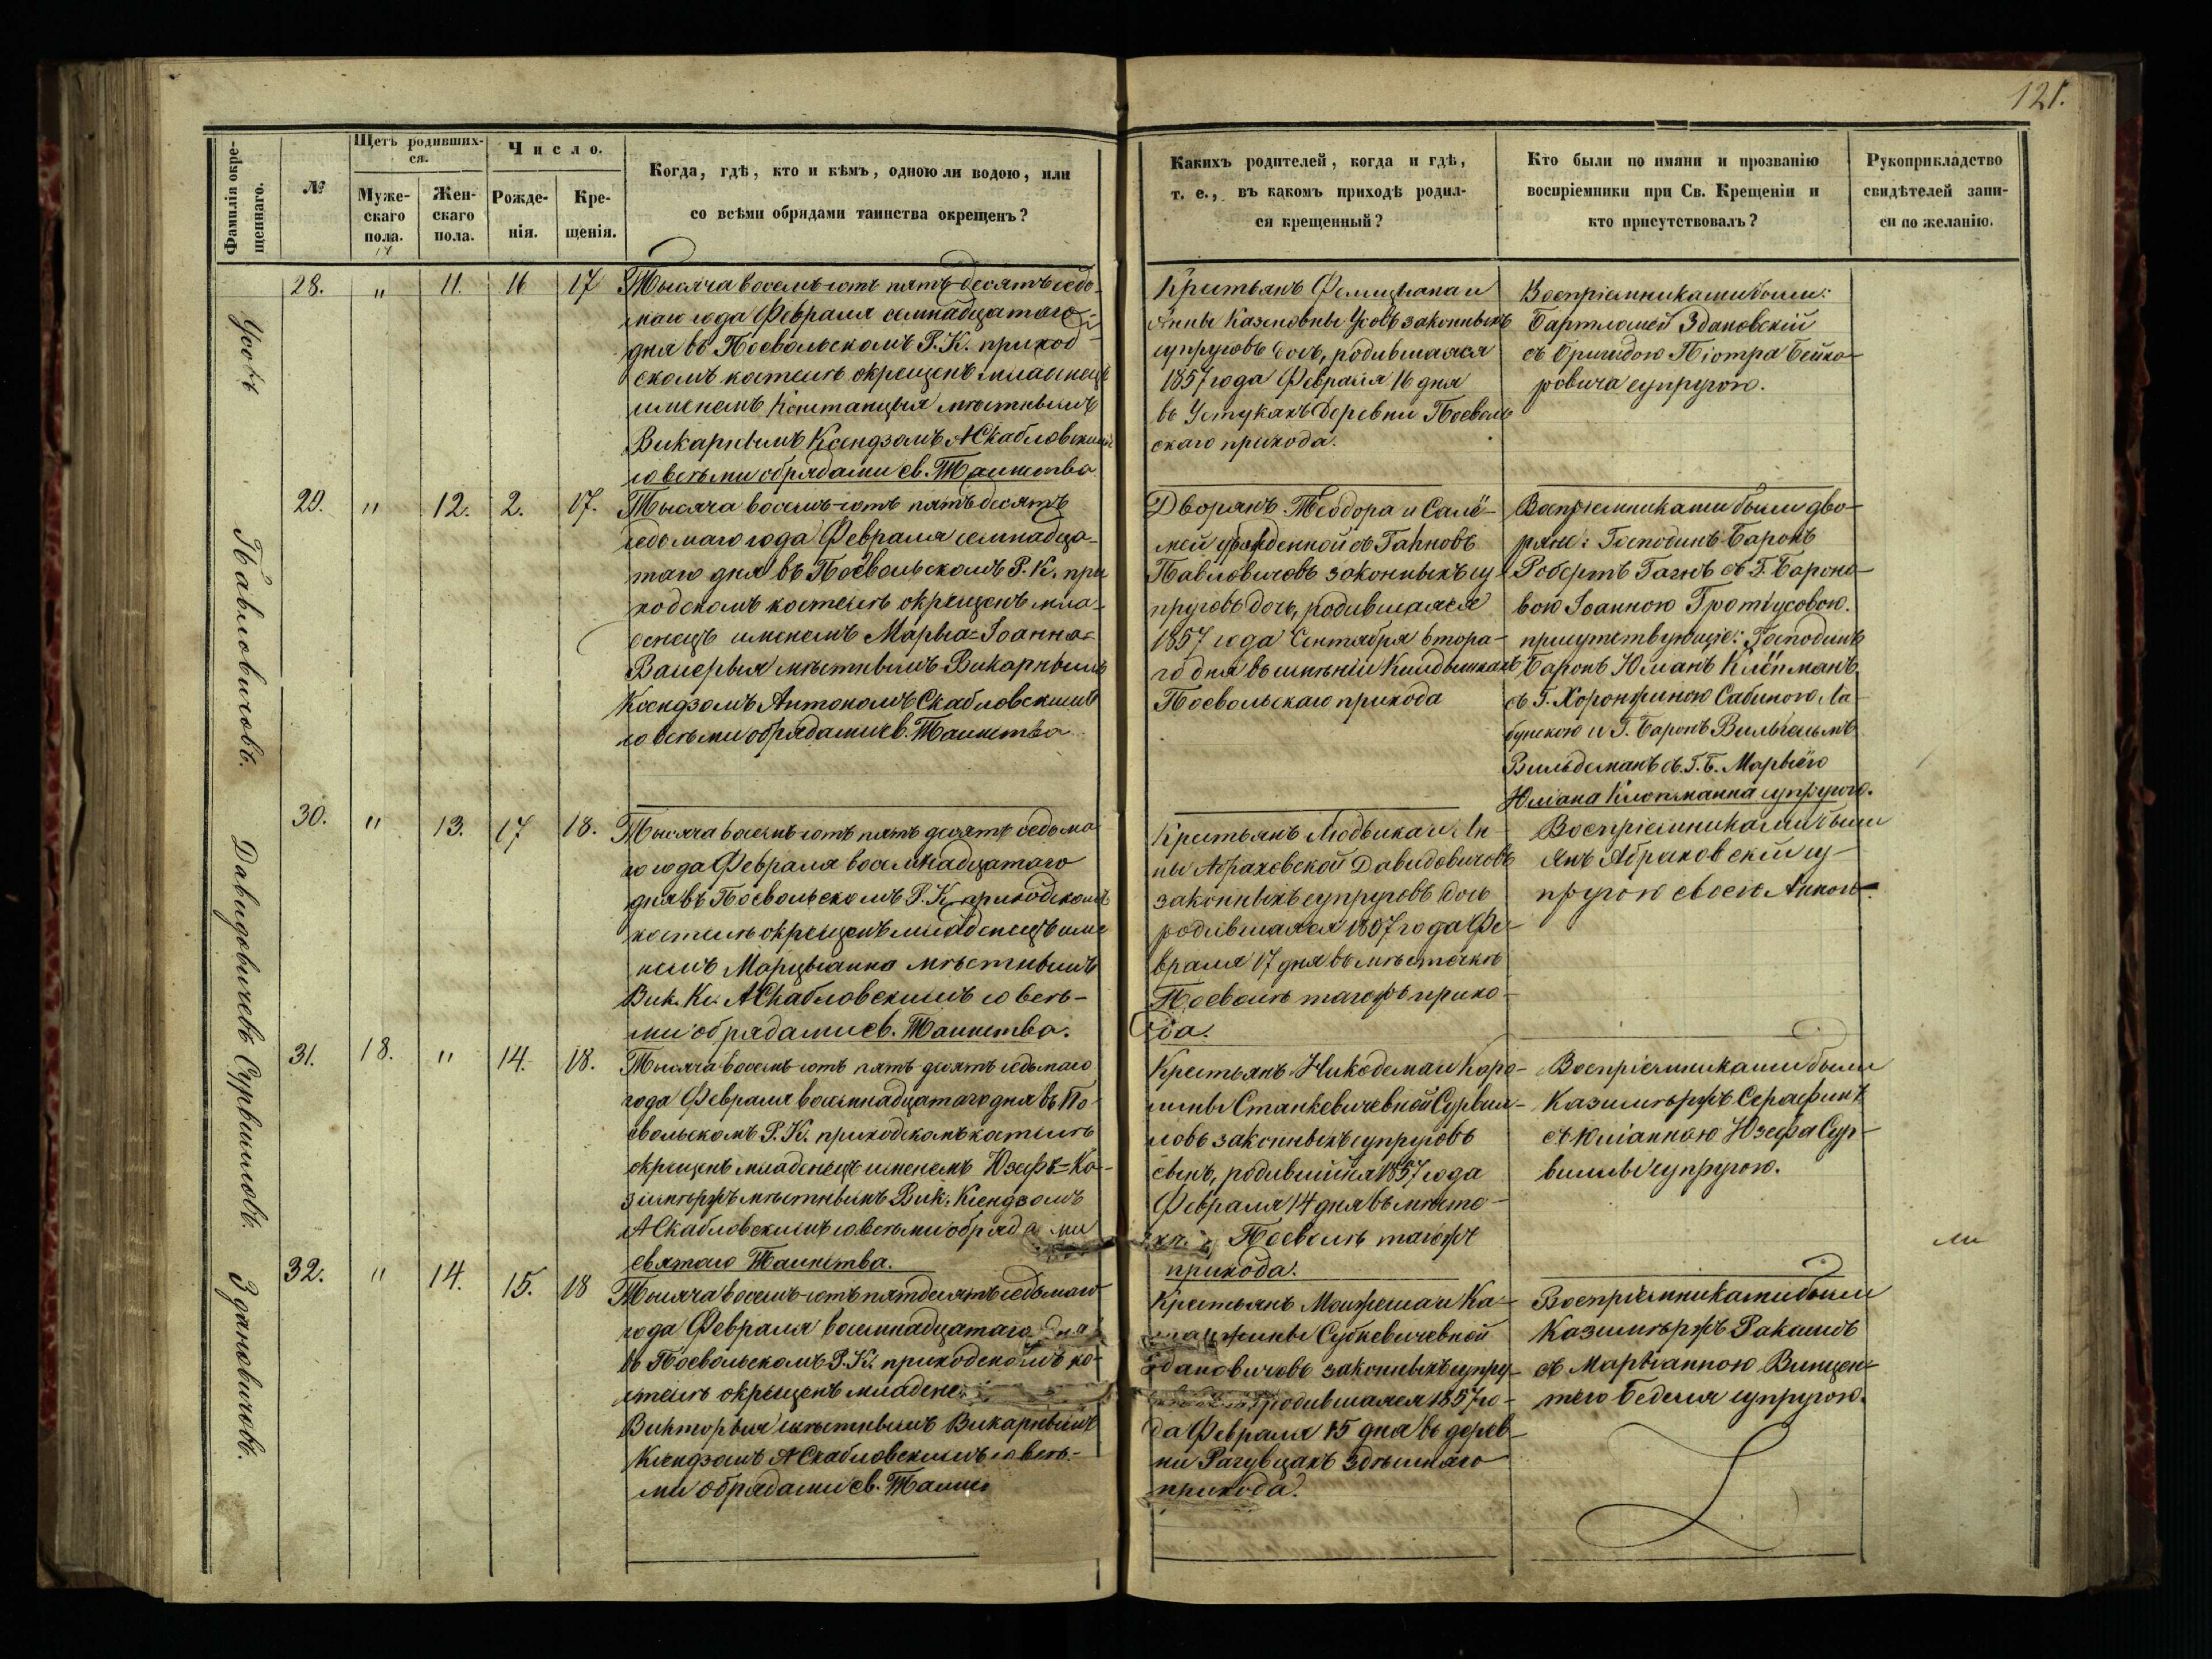 121.
Фамилія окре-
щеннаго.
№
Щетъ родивших-
ся.
Муже-
скаго
пола.
Жен-
скаго
пола.
Число.
Рожде-
нія.
Кре-
щенія.
Когда, гдѣ, кто и кѣмъ, одною ли водою, или
со всѣми обрядами таинства окрещенъ?
Какихъ родителей, когда и гдѣ,
т. е., въ какомъ приходѣ родил-
ся крещенный?
Кто были по имяни и прозванію
воспріемники при Св. Крещеніи и
кто присутствовалъ?
Рукоприкладство
свидѣтелей запи-
си по желанію.
28. " 11. 16 17
Тысяча восемь-сотъ пять-десятъ седь-
маго года Февраля семнадцатаго
дня въ Посвольскомъ Р. К. приход-
скомъ костелѣ окрещенъ младенецъ
именемъ Констанцыя мѣстнымъ
Викарнымъ Ксендзомъ А Скабловскимъ
со всѣми обрядами св. Таинства
Крестьянъ
Анны законныхъ
супруговъ дочь, родившаяся
1857 года Февраля 16 дня
въ Устукахъ деревни Посволь
скаго прихода.
Воспріемниками были:
Бартломей Здановскій
съ Бригидою Піотра Бейна-
ровича супругою.
Павловичовъ.
29. " 12. 2. 17.
Тысяча восемь-сотъ пятьдесятъ
седьмаго года Февраля семнадца-
таго дня въ Посвольскомъ Р. К. при
ходскомъ костелѣ окрещенъ мла-
денецъ именемъ Марыа=Іоанна=
Валерыя мѣстнымъ Викарнымъ
Ксендзомъ Антономъ Скабловскимъ
со всѣми обрядами св. Таинства
Дворянъ Теодора и Сало-
меи урожденной съ Гановъ
Павловичовъ законныхъ су
пруговъ дочь, родившаяся
1857 года Сентября втора-
го дня въ имѣніи
Посвольскаго прихода
Воспріемниками были дво-
ряне: Господинъ Баронъ
Робертъ Ганъ съ Г. Бароно-
вою Іоанною Гротусовою.
присутствующіе: Господинъ
Баронъ Юліанъ Клопманъ
съ Г. Хоронжиною Сабиною Ла-
бунскою и Г. Баронъ Вильгельмъ
Вильдеманъ съ Г. Б. Марыею
Юліана Клопманна супругою.
Давидовичевъ
30. " 13. 17 18.
Тысяча восемь-сотъ пять десятъ седьма
го года Февраля восемнадцатаго
дня въ Посвольскомъ Р. К. приходскомъ
костелѣ окрещенъ младенецъ име
немъ Марцыанна мѣстнымъ
Вик. Кс. А Скабловскимъ со всѣ-
ми обрядами св. Таинства.
Крестьянъ Людвика и Ан-
ны Абраховской Давидовичовъ
законныхъ супруговъ дочь
родившаяся 1857 года Фе-
враля 17 дня въ мѣстечкѣ
Посволѣ тагожъ прихо-
да.
Воспріемниками были
Янъ Абраховскій су-
пругою своею Анною.
Сурвиловъ.
31. 18. " 14. 18.
Тысяча восемь-сотъ пять десятъ седьмаго
года Февраля восемнадцатаго дня въ По-
свольскомъ Р. К. приходскомъ костелѣ
окрещенъ младенецъ именемъ Юзефъ=Ка-
зимѣржъ мѣстнымъ Вик. Ксендзомъ
А Скабловскимъ со всѣми обрядами
святаго Таинства.
Крестьянъ Никодема и Каро-
лины Станкевичевной Сурвил-
ловъ законныхъ супруговъ
сынъ, родившійся 1857 года
Февраля 14 дня въ мѣсте-
Посволѣ тагожъ
прихода.
Воспріемниками были
Казимѣржъ Серафинъ
съ Юліанною Юзефа Сур-
вилы супругою.
ми
Здановичовъ.
32. " 14. 15. 18
Тысяча восемь-сотъ пятдесятъ седьмаго
года Февраля восемнадцатаго дня
въ Посвольскомъ Р. К. приходскомъ ко-
стелѣ окрещенъ младене
Викторыя мѣстнымъ Викарнымъ
Ксендзомъ А Скабловскимъ со всѣ-
ми обрядами св. Таинс
Крестьянъ Монфеша и Ка-
Субкевичевной
Здановичовъ законныхъ супру-
родившаяся 1857 го-
да Февраля 15 дня въ дерев-
ни здѣшняго
прихода.
Воспріемниками были
Казимѣржъ Ракашъ
съ Марыанною Винцен-
тего Беделя супругою.